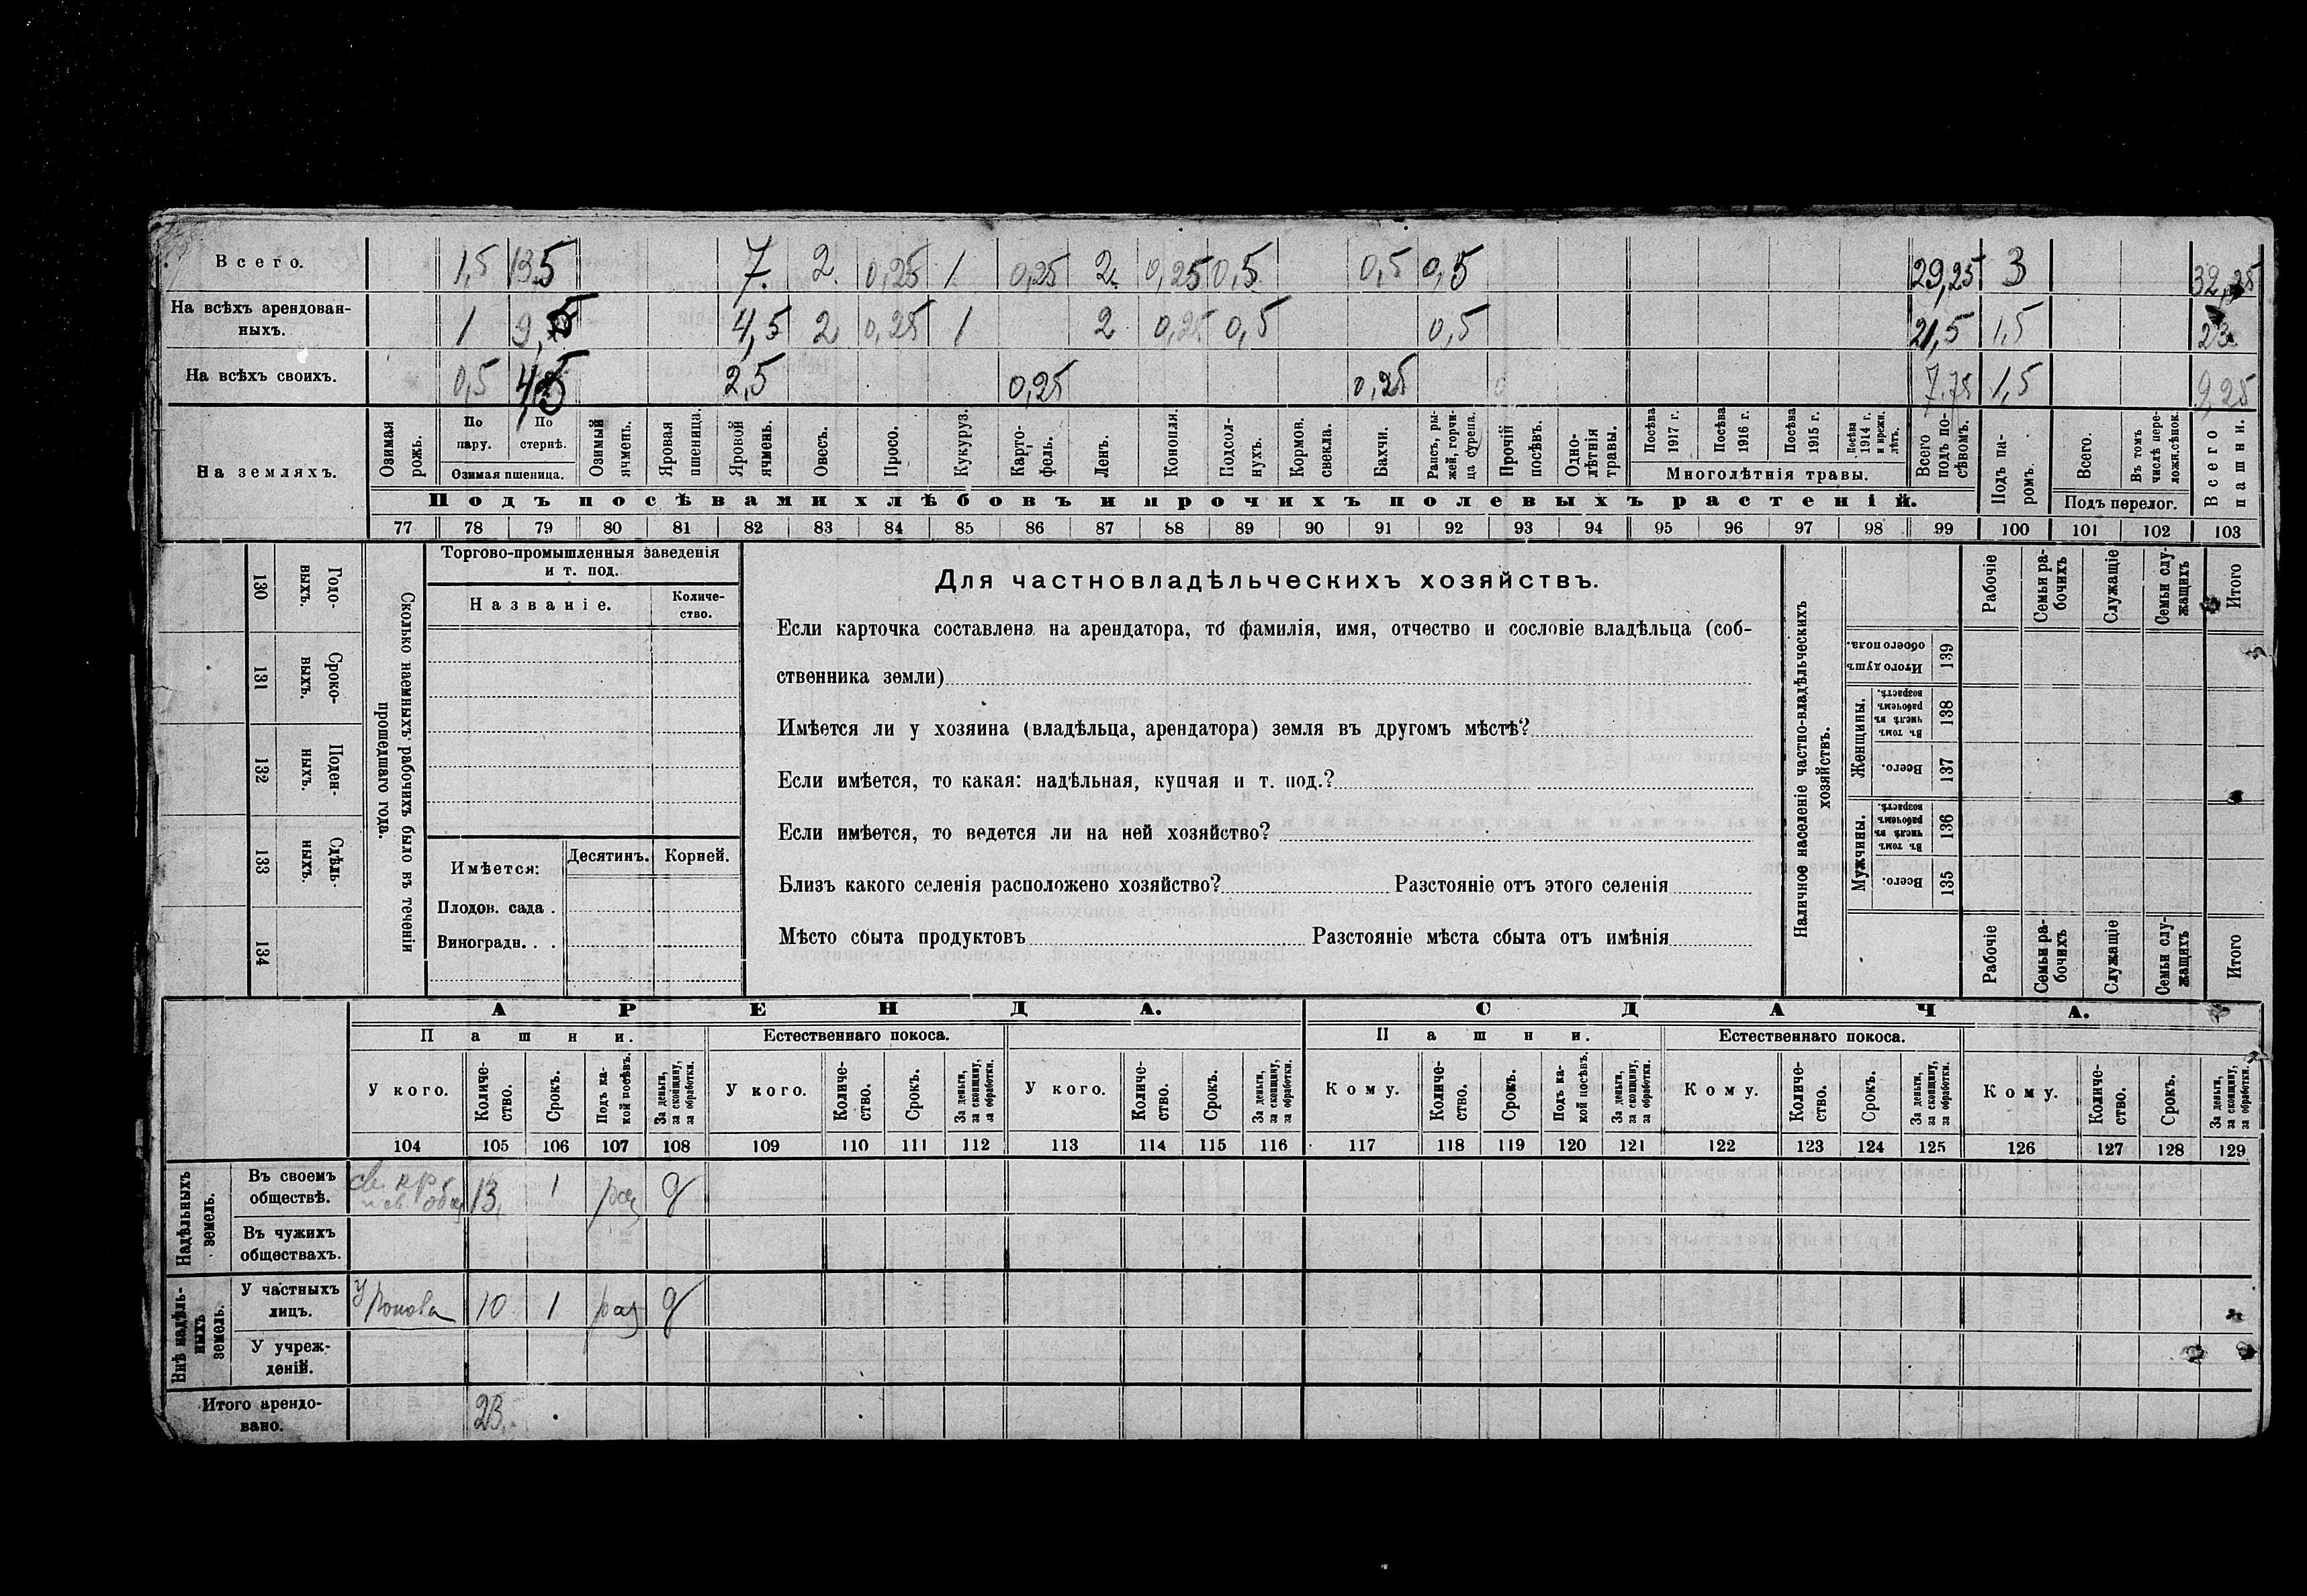 Всего. 1,5 13,5 7. 2. 0,25 1 0,25 2. 0,25 0,5 0,5 0,5 29,25 3 32,25
На всѣхъ арендован-
ныхъ. 1 9, 4,5 2 0,25 1 2 0,25 0,5 0,5 21,5 1,5 23
На всѣхъ своихъ. 0,5 2,5 0,25 0,25 7,75 1,5 9,25
На земляхъ.
Озимая рожь.
По пару.
По стернѣ.
Озимая пшеница.
Озимый ячмень.
Яровая пшеница.
Яровой ячмень.
Овесъ.
Просо.
Кукуруз.
Карто-
фель.
Ленъ.
Конопля.
Подсол-
нухъ.
Кормов. свекла.
Бахчи.
Рапсъ, ры-
жей, горчи-
ца сурепа.
Прочій посѣвъ.
Одно-
лѣтнія травы.
Посѣва 1917 г.
Посѣва 1916 г.
Посѣва 1915 г.
Посѣва 1914 г. и прежн. лѣтъ.
Многолѣтнія травы.
Всего подъ по-
сѣвомъ.
Подъ па-
ромъ.
Всего.
Въ томъ числѣ пере-
ложн.сѣнок.
Подъ перелог.
Всего пашни.
Подъ посѣвами хлѣбовъ и прочихъ полевыхъ растеній.
77 78 79 80 81 82 83 84 85 86 87 88 89 90 91 92 93 94 95 96 97 98 99 100 101 102 103
130 Годо-
выхъ.
131 Сроко-
выхъ.
132 Поден-
ныхъ.
133 Сдѣль-
ныхъ.
134
Сколько наемныхъ рабочихъ было въ теченіи
прошедшаго года.
Торгово-промышленныя заведенія
и т. под.
Названіе.
Количе-
ство.
Имѣется:
Десятинъ.
Корней.
Плодов. сада .
Виноградн. . .
Для частновладѣльческихъ хозяйствъ.
Если карточка составлена на арендатора, то фамилія, имя, отчество и сословіе владѣльца (соб-
ственника земли)
Имѣется ли у хозяина (владѣльца, арендатора) земля въ другомъ мѣстѣ?
Если имѣется, то какая: надѣльная, купчая и т. под.?
Если имѣется, то ведется ли на ней хозяйство?
Близъ какого селенія расположено хозяйство? Разстояніе отъ этого селенія
Мѣсто сбыта продуктовъ Разстояніе мѣста сбыта отъ имѣнія
Наличное населеніе частно-владѣльческихъ
хозяйствъ.
Рабочіе
Семьи ра-
бочихъ
Служащіе
Семьи слу-
жащихъ
Итого
Итого душъ обоего пола. 139
Женщины.
Въ томъ числѣ въ рабочемъ возрастѣ. 138
Всего. 137
Мужчины.
Въ томъ числѣ въ рабочемъ возрастѣ. 136
Всего. 135
Рабочіе
Семьи ра-
бочихъ
Служащіе
Семьи слу-
жащихъ
Итого
АРЕНДА. СДАЧА.
Пашни. Естественнаго покоса. Пашни. Естественнаго покоса.
У кого.
Количе-
ство.
Срокъ.
Подъ ка-
кой посѣвъ.
За деньги,
за скопщину,
за обработки.
У кого.
Количе-
ство.
Срокъ.
За деньги,
за скопщину,
за обработки.
У кого.
Количе-
ство.
Срокъ.
За деньги,
за скопщину,
за обработки.
Кому.
Количе-
ство.
Срокъ.
Подъ ка-
кой посѣвъ.
За деньги,
за скопщину,
за обработки.
Кому.
Количе-
ство.
Срокъ.
За деньги,
за скопщину,
за обработки.
Кому.
Количе-
ство.
Срокъ.
За деньги,
за скопщину,
за обработки.
104 105 106 107 108 109 110 111 112 113 114 115 116 117 118 119 120 121 122 123 124 125 126 127 128 129
Надѣльныхъ земель.
Въ своемъ
обществѣ. 13, 1 раз д
Въ чужихъ
обществахъ.
Внѣ надѣль-
ныхъ земель.
У частныхъ
лицъ. У Попова 10 1 раз д
У учреж-
деній.
Итого арендо-
вано. 23.